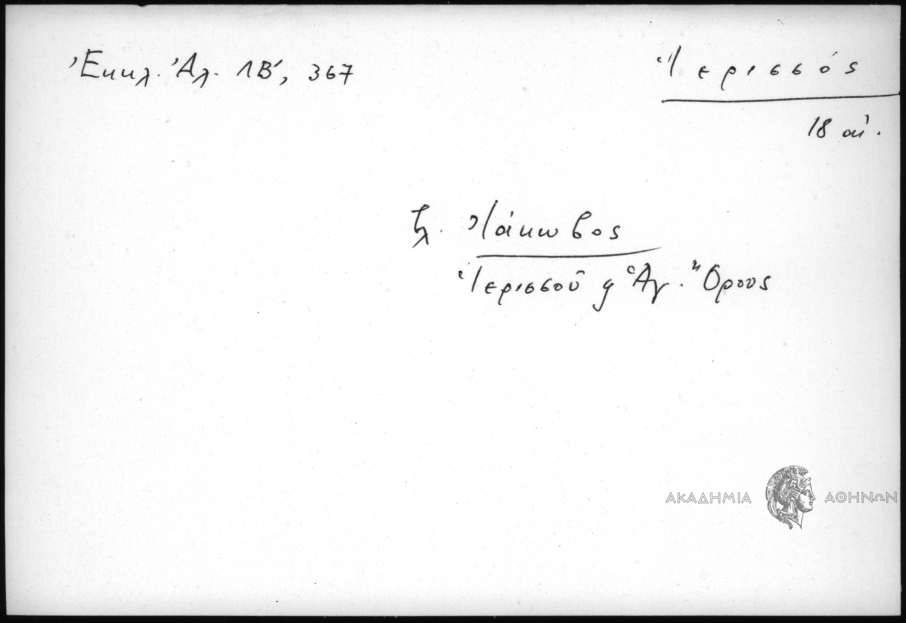 Ἐκκλ. Ἀλ. ΛΒ', 367
Ἱερισσός
18 αἰ.
Ἰάκωβος
Ἱερισσοῦ ϗ Ἁγ. Ὄρους
ΑΚΑΔΗΜΙΑ ΑΘΗΝΩΝ